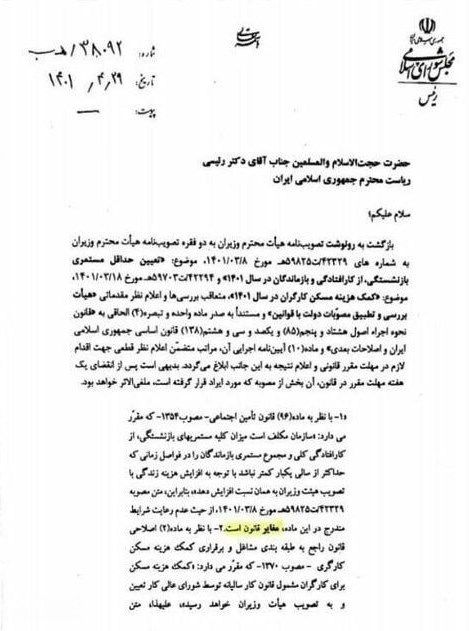 جمهوری اسلامی ایران
مجلس شورای اسلامی
رئیس
شماره: ۳۸۰۹۲/هـ ب
تاریخ: ۱۴۰۱/۴/۲۹
پیوست: ــ
حضرت حجت‌الاسلام والمسلمین جناب آقای دکتر رئیسی
ریاست محترم جمهوری اسلامی ایران
سلام علیکم؛
بازگشت به رونوشت تصویب‌نامه هیأت محترم وزیران به دو فقره تصویب‌نامه هیأت محترم وزیران
به شماره های ۴۲۳۲۹/ت۵۹۸۲۵هـ مورخ ۱۴۰۱/۰۳/۸، موضوع: «تعیین حداقل مستمری
بازنشستگی، از کارافتادگی و بازماندگان در سال ۱۴۰۱» و ۴۲۲۹۴/ت۵۹۷۰۳هـ مورخ ۱۴۰۱/۰۳/۱۸،
موضوع: «کمک هزینه مسکن کارگران در سال ۱۴۰۱»، متعاقب بررسی‌ها و اعلام نظر مقدماتی «هیأت
بررسی و تطبیق مصوّبات دولت با قوانین» و مستنداً به صدر ماده واحده و تبصره(۴) الحاقی به «قانون
نحوه اجراء اصول هشتاد و پنجم(۸۵) و یکصد و سی و هشتم(۱۳۸) قانون اساسی جمهوری اسلامی
ایران و اصلاحات بعدی» و ماده(۱۰) آیین‌نامه اجرایی آن، مراتب متضمّن اعلام نظر قطعی جهت اقدام
لازم در مهلت مقرر قانونی و اعلام نتیجه به این جانب ابلاغ می‌گردد. بدیهی است پس از انقضای یک
هفته مهلت مقرر در قانون، آن بخش از مصوبه که مورد ایراد قرار گرفته است، ملغی‌الاثر خواهد بود.
«۱- با نظر به ماده(۹۶) قانون تأمین اجتماعی- مصوب۱۳۵۴- که مقرّر
می دارد: «سازمان مکلف است میزان کلیه مستمریهای بازنشستگی، از
کارافتادگی کلی و مجموع مستمری بازماندگان را در فواصل زمانی که
حداکثر از سالی یکبار کمتر نباشد با توجه به افزایش هزینه زندگی با
تصویب هیئت وزیران به همان نسبت افزایش دهد»، بنابراین، متن مصوبه
۴۲۳۲۹/ت۵۹۸۲۵هـ مورخ ۱۴۰۱/۰۳/۸، از حیث عدم رعایت شرایط
مندرج در این ماده، مغایر قانون است. ۲- با نظر به ماده(۲) اصلاحی
قانون راجع به طبقه بندی مشاغل و برقراری کمک هزینه مسکن
کارگری - مصوب ۱۳۷۰- که مقرّر می دارد: «کمک هزینه مسکن
برای کارگران مشمول قانون کار سالیانه توسط شورای عالی کار تعیین
و به تصویب هیأت وزیران خواهد رسید»، علیهذا، متن